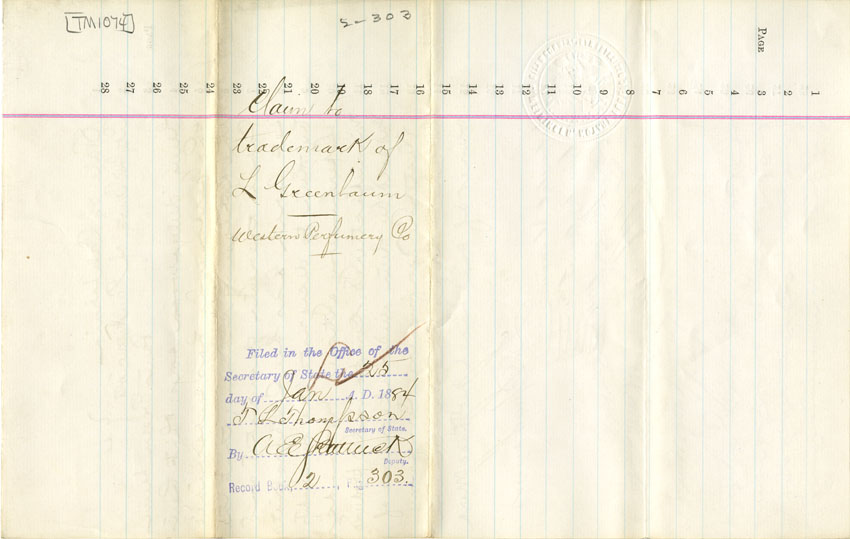 [TM1074]
2-303
PAGE
1
2
3
4
5
6
7
8
9
10
11
12
13
14
15
16
17
18
19
20
21
22
23
24
25
26
27
28
Claim to
trademark of
L Greenbaum
Western Perfumery Co
Filed in the Office of the
Secretary of State the 25
day of Jan A. D. 1884
T L Thompson
Secretary of State.
By A E
Deputy.
Record Book 2, 303.